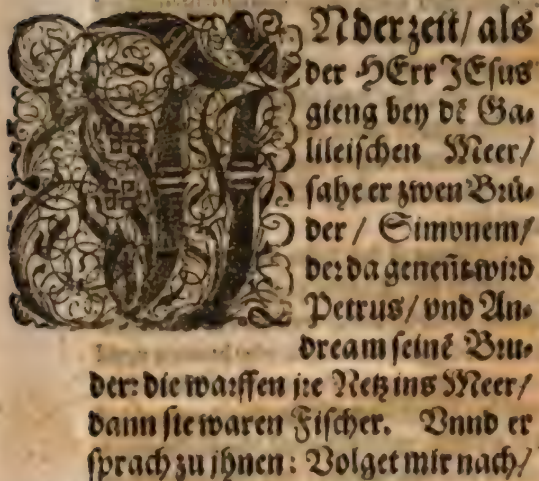 N der zeit/ als
der HErr JEsus
gieng bey dẽ Ga⸗
lileischen Meer/
sahe er zwen Brü⸗
der / Simonem/
der da geneñt wird
Petrus/ vnd An⸗
dream seinẽ Bru⸗
der: die warffen jre Netz ins Meer/
dann sie waren Fischer. Vnnd er
sprach zu jhnen: Volget mir nach/